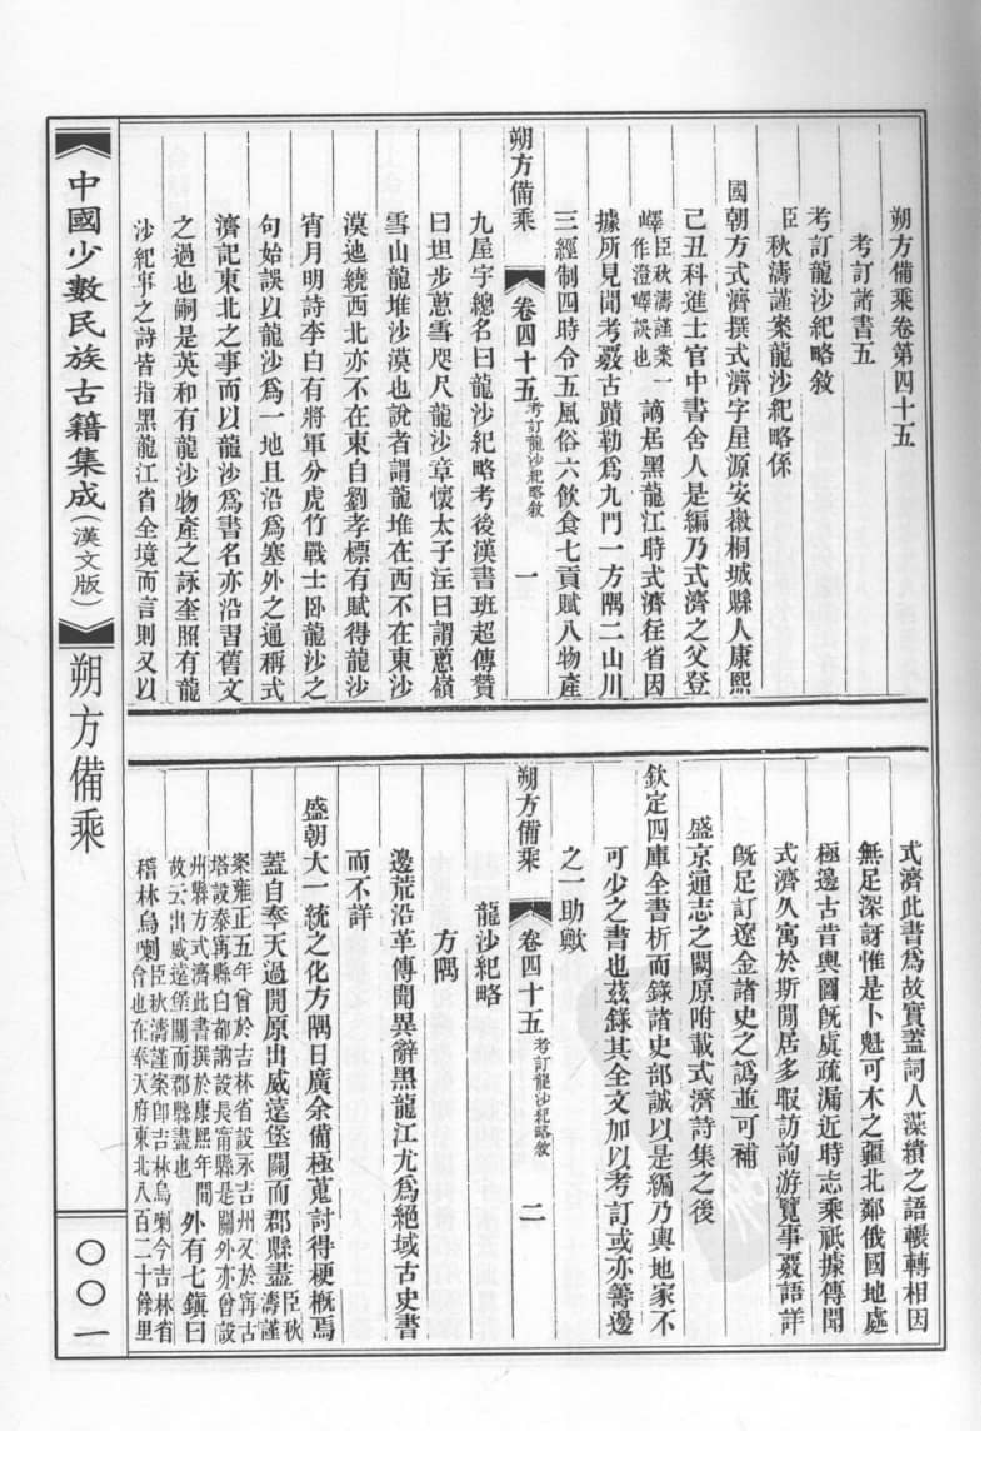 朔方備乘卷第四十五
考訂諸書五
考訂龍沙紀略敘
臣秋濤謹案龍沙紀略係
國朝方式濟撰式濟字屋源安徽桐城縣人康熙
己丑科進士官中書舍人是編乃式濟之父登
嶧臣秋濤謹案一作澄嶧誤也謫居黑龍江時式濟往省因
據所見聞考覈古蹟勒為九門一方隅二山川
三經制四時令五風俗六飲食七貢賦八物產
朔方備乘 卷四十五考訂龍沙紀略敘 一
九屋宇總名曰龍沙紀略考後漢書班超傳贊
曰坦步蔥雪咫尺龍沙章懷太子注曰謂蔥嶺
雪山龍堆沙漠也說者謂龍堆在西不在東沙
漠迆繞西北亦不在東自劉孝標有賦得龍沙
宵月明詩李白有將軍分虎竹戰士卧龍沙之
句始誤以龍沙為一地且沿為塞外之通稱式
濟記東北之事而以龍沙為書名亦沿習舊文
之過也嗣是英和有龍沙物產之詠奎照有龍
沙紀事之詩皆指黑龍江省全境而言則又以
式濟此書為故實蓋詞人藻繢之語輾轉相因
無足深訝惟是卜魁可木之疆北鄰俄國地處
極邊古昔輿圖旣虞疏漏近時志乘祇據傳聞
式濟久寓於斯閒居多暇訪詢游覽事覈語詳
旣足訂遼金諸史之譌並可補
盛京通志之闕原附載式濟詩集之後
欽定四庫全書析而錄諸史部誠以是編乃輿地家不
可少之書也茲錄其全文加以考訂或亦籌邊
之一助歟
朔方備乘 卷四十五考訂龍沙紀略敘 二
龍沙紀略
方隅
邊荒沿革傳聞異辭黑龍江尤為絕域古史書
而不詳
盛朝大一統之化方隅日廣余備極蒐討得梗概焉
蓋自奉天過開原出威遠堡關而郡縣盡臣秋濤謹
案雍正五年曾於吉林省設永吉州又於甯古
塔設泰甯縣白都訥設長甯縣是關外亦曾設
州縣方式濟此書撰於康熙年間
故云出威遠堡關而郡縣盡也外有七鎭曰
稽林烏喇臣秋濤謹案卽吉林烏喇今吉林省
會也在奉天府東北八百二十餘里
《中國少數民族古籍集成（漢文版）》
朔方備乘
〇〇一